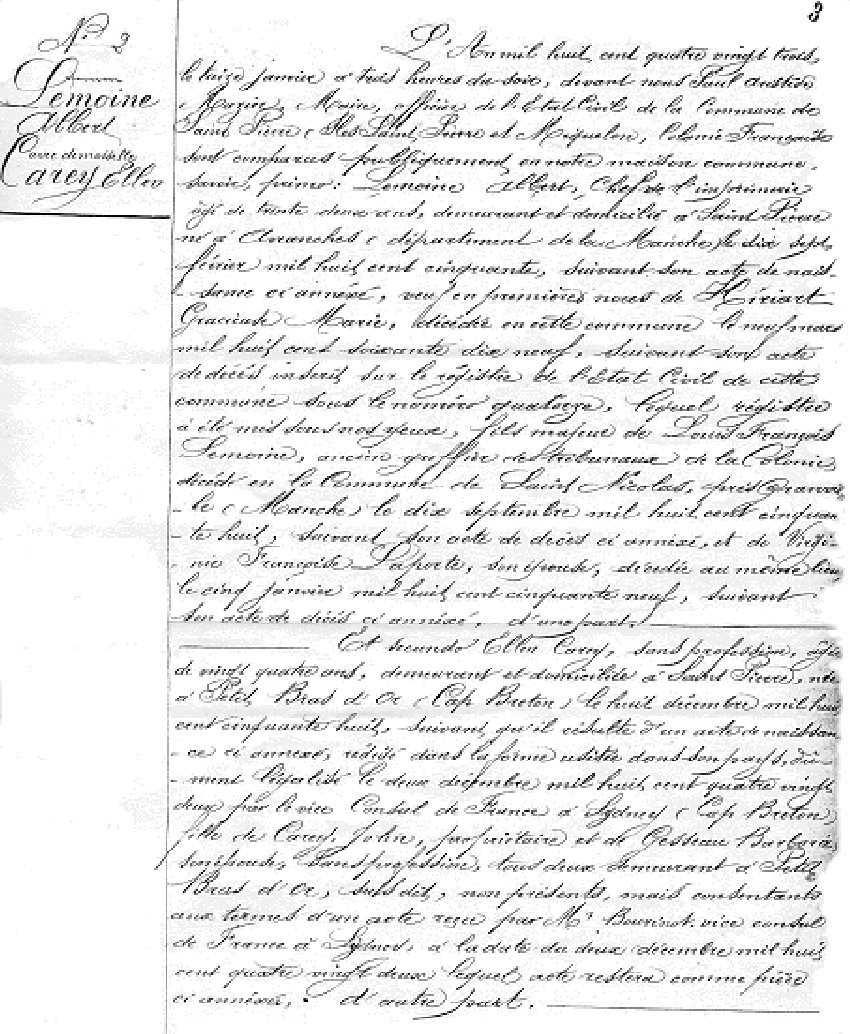 3
Nº 2
Lemoine
Albert
avec demoiselle
Carey Ellen
L'An mil huit cent quatre vingt trois,
le treize janvier à trois heures du soir, devant nous Paul
Mazier, Maire, officier de l'Etat Civil de la Commune de
Saint Pierre (Iles Saint Pierre et Miquelon, Colonie Française
sont comparus publiquement en notre maison commune,
savoir, primo: Lemoine Albert, Chef de l'imprimerie
âgé de trente deux ans, demeurant et domicilié à Saint Pierre
né à Avranches (département de la Manche) le dix sept
février mil huit cent cinquante, suivant son acte de nais-
-sance ci annéxé, veuf en premières noces de Hiriart
Gracieuse Marie, décédée en cette commune le neuf mars
mil huit cent soixante dix neuf, suivant son acte
de décès inscrit sur le régistre de l'Etat Civil de cette
commune sous le numéro quatorze, lequel régistre
a été mis sous nos yeux, fils majeur de Louis François
Lemoine, ancien greffier des tribunaux de la Colonie,
décédé en la Commune de Saint Nicolas, près Granvil-
-le (Manche) le dix septembre mil huit cent cinquan
-te huit, suivant son acte de décès ci annéxé, et de Virgi-
-nie Françoise Laporte, son épouse, décédée au même lieu,
le cinq janvier mil huit cent cinquante neuf, suivant
son acte de décès ci annéxé, d'une part.
Et secundo Ellen Carey, sans profession, âgée
de vingt quatre ans, demeurant et domiciliée à Saint Pierre, née
à Petit Bras d'Or (Cap Breton) le huit décembre mil huit
cent cinquante huit, suivant qu'il résulte d'un acte de naissan
-ce ci annéxé, rédigé dans la forme usitée dans son pays, dû-
-ment légalisé le deux décembre mil huit cent quatre vingt
deux par le vice Consul de France à Sydney (Cap Breton)
fille de Carey, John, propriétaire et de Gesseau Barbara,
son épouse, sans profession, tous deux demeurant à Petit
Bras d'Or, susdit, non présents, mais consentants
aux termes d'un acte reçu par Mr Bourinot, vice consul
de France à Sydney, à la date du deux décembre mil huit
cent quatre vingt deux lequel acte restera comme pièce
ci annéxée, d'autre part.